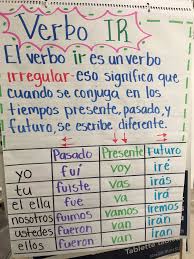 Verbo IR
El verbo ir es un verbo
irregular-eso significa que
cuando se conjuga en los
tiempos presente, pasado, y
futuro, se escribe diferente.
Pasado Presente Futuro
yo fui voy iré
tu fuiste vas irás
el ella fue va irá
nosotros fuimos vamos iremos
ustedes fueron van irán
ellos fueron van irán
Tablette